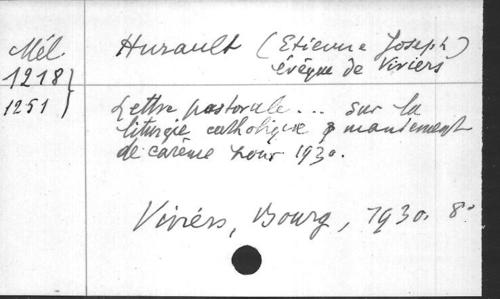 Mél
1218
1251
Hurault (Etienne Joseph)
évêque de Viviers
Lettre pastorale... sur la
liturgie catholique & mandement
de carême pour 1930.
Viviers, Bourg, 1930. 8º